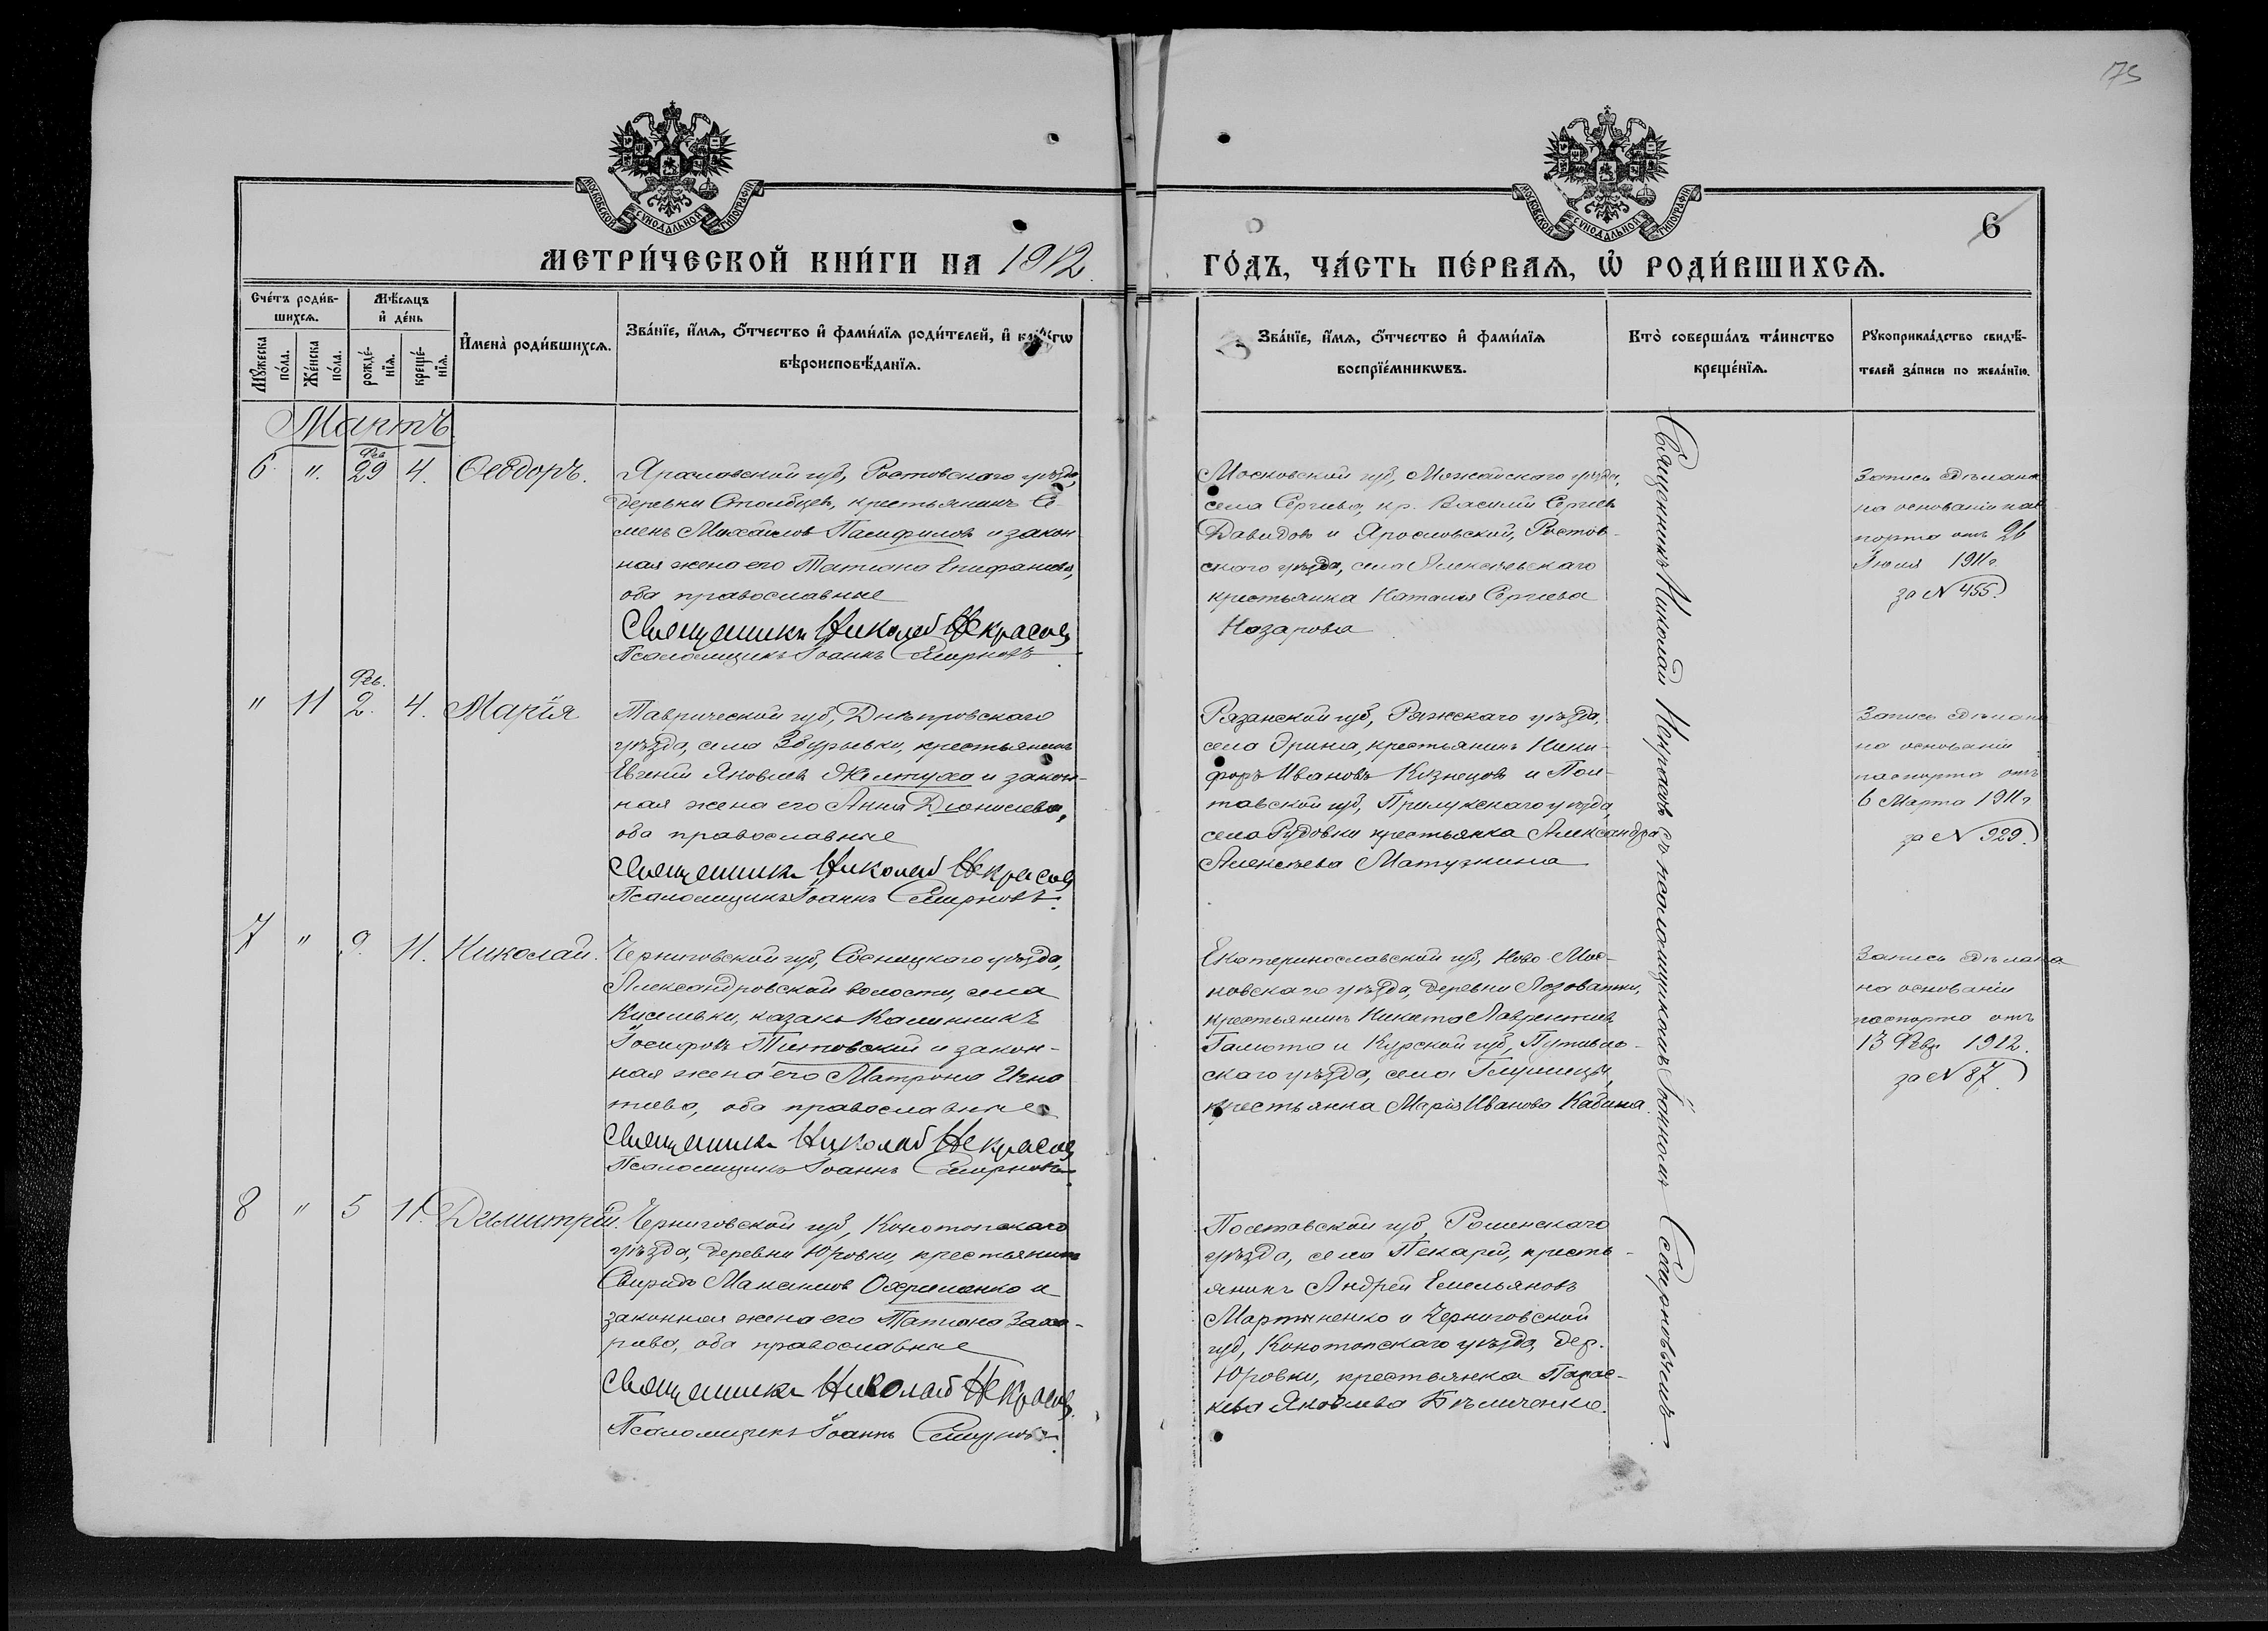 175
МОСКОВСКОЙ СѴНОДАЛЬНОЙ ТИПОГРАФІИ
МОСКОВСКОЙ СѴНОДАЛЬНОЙ ТИПОГРАФІИ
6
МЕТРИ́ЧЕСКОЙ КНИ́ГИ НА 1912
ГО́ДЪ, ЧА́СТЬ ПЕ́РВАѦ, Ѡ҆ РОДИ́ВШИХСѦ.
Сче́тъ роди́в-
шихсѧ.
Мꙋ́жеска по́ла.
Же́нска по́ла.
Мѣ́сѧцъ
и҆ де́нь
рожде́-нїѧ.
креще́-нїѧ.
И҆мена̀ роди́вшихсѧ.
Зва́нїе, и҆́мѧ, ѻ҆́тчество и҆ фами́лїѧ роди́телей, и҆
вѣроисповѣ́данїѧ.
Зва́нїе, и҆́мѧ, ѻ҆́тчество и҆ фами́лїѧ
воспрїе́мникѡвъ.
Кто̀ соверша́лъ та́инство
креще́нїѧ.
Рꙋкоприкла́дство свидѣ́-
телей за́писи по жела́нїю.
Мартъ
6. " Фев 29 4. Ѳеодоръ.
Ярославской губ, Ростовского уѣзда,
деревни Столбцевъ, крестьянинъ Се-
менъ Михаиловъ Памфиловъ и закон
ная жена его Татиана Епифаниева,
оба православные
Священникъ Николай Некрасовъ
Псаломщикъ Іоаннъ Смирновъ
Московской губ, Можайскаго уѣзда,
села Сергіева, кр. Василій Сергіевъ
Давидовъ и Ярославской, Ростов-
скаго уѣзда, села Алексѣевскаго
крестьянка Наталія Сергіева
Назарова
Запись дѣлана
на основаніи пас
порта отъ 26
Іюля 1911 г.
за № 455.
" 11 Фев. 2. 4. Марія
Таврической губ, Днѣпровскаго
уѣзда, села Збурьевки, крестьянинъ
Евгеній Яковлевъ Желтуха и закон-
ная жена его Анна Діонисіева,
оба православные
Священникъ Николай Некрасовъ
Псаломщикъ Іоаннъ Смирновъ.
Рязанской губ, Ряжскаго уѣзда,
села Эрина, крестьянинъ Ники-
форъ Ивановъ Кузнецовъ и Пол-
тавской губ, Прилукскаго уѣзда,
села Рудовки крестьянка Александра
Алексѣева Матушкина
Запись дѣлана
на основаніи
паспорта отъ
6 Марта 1911 г
за № 929.
7 " 9. 11. Николай.
Черниговской губ, Сосницкаго уѣзда,
Александровской волости, села
Киселевки, казакъ Калинникъ
Іосифовъ Титовскій и закон-
ная жена его Матрона Игна
тіева, оба православные
Священникъ Николай Некрасовъ
Псаломщикъ Іоаннъ Смирновъ
Екатеринославской губ, Ново-Мос-
ковскаго уѣзда, деревни Лозоватки,
крестьянинъ Никита Лаврентіевъ
Галюта и Курской губ, Путивль-
скаго уѣзда, села Глушецъ,
крестьянка Марія Иванова Кабина.
Запись дѣлана
на основаніи
паспорта отъ
13 Февр 1912.
за № 87.
8 " 5 11. Димитрій.
Черниговской губ, Конотопскаго
уѣзда, деревни Юровки, крестьянинъ
Свиридъ Максимовъ Охрименко и
законная жена его Татиана Заха-
ріева, оба православные
Священникъ Николай Некрасовъ.
Псаломщикъ Іоаннъ Смирновъ.
Полтавской губ, Роменскаго
уѣзда, села Пекарей, кресть-
янинъ Андрей Емельяновъ
Мартыненко и Черниговской
губ, Конотопскаго уѣзда, дер.
Юровки, крестьянка Парас-
кева Яковлева Бѣличенко.
Священникъ Николай Некрасовъ съ псаломщикомъ Іоанномъ Смирновымъ.